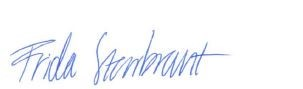 Frida Stenbrant